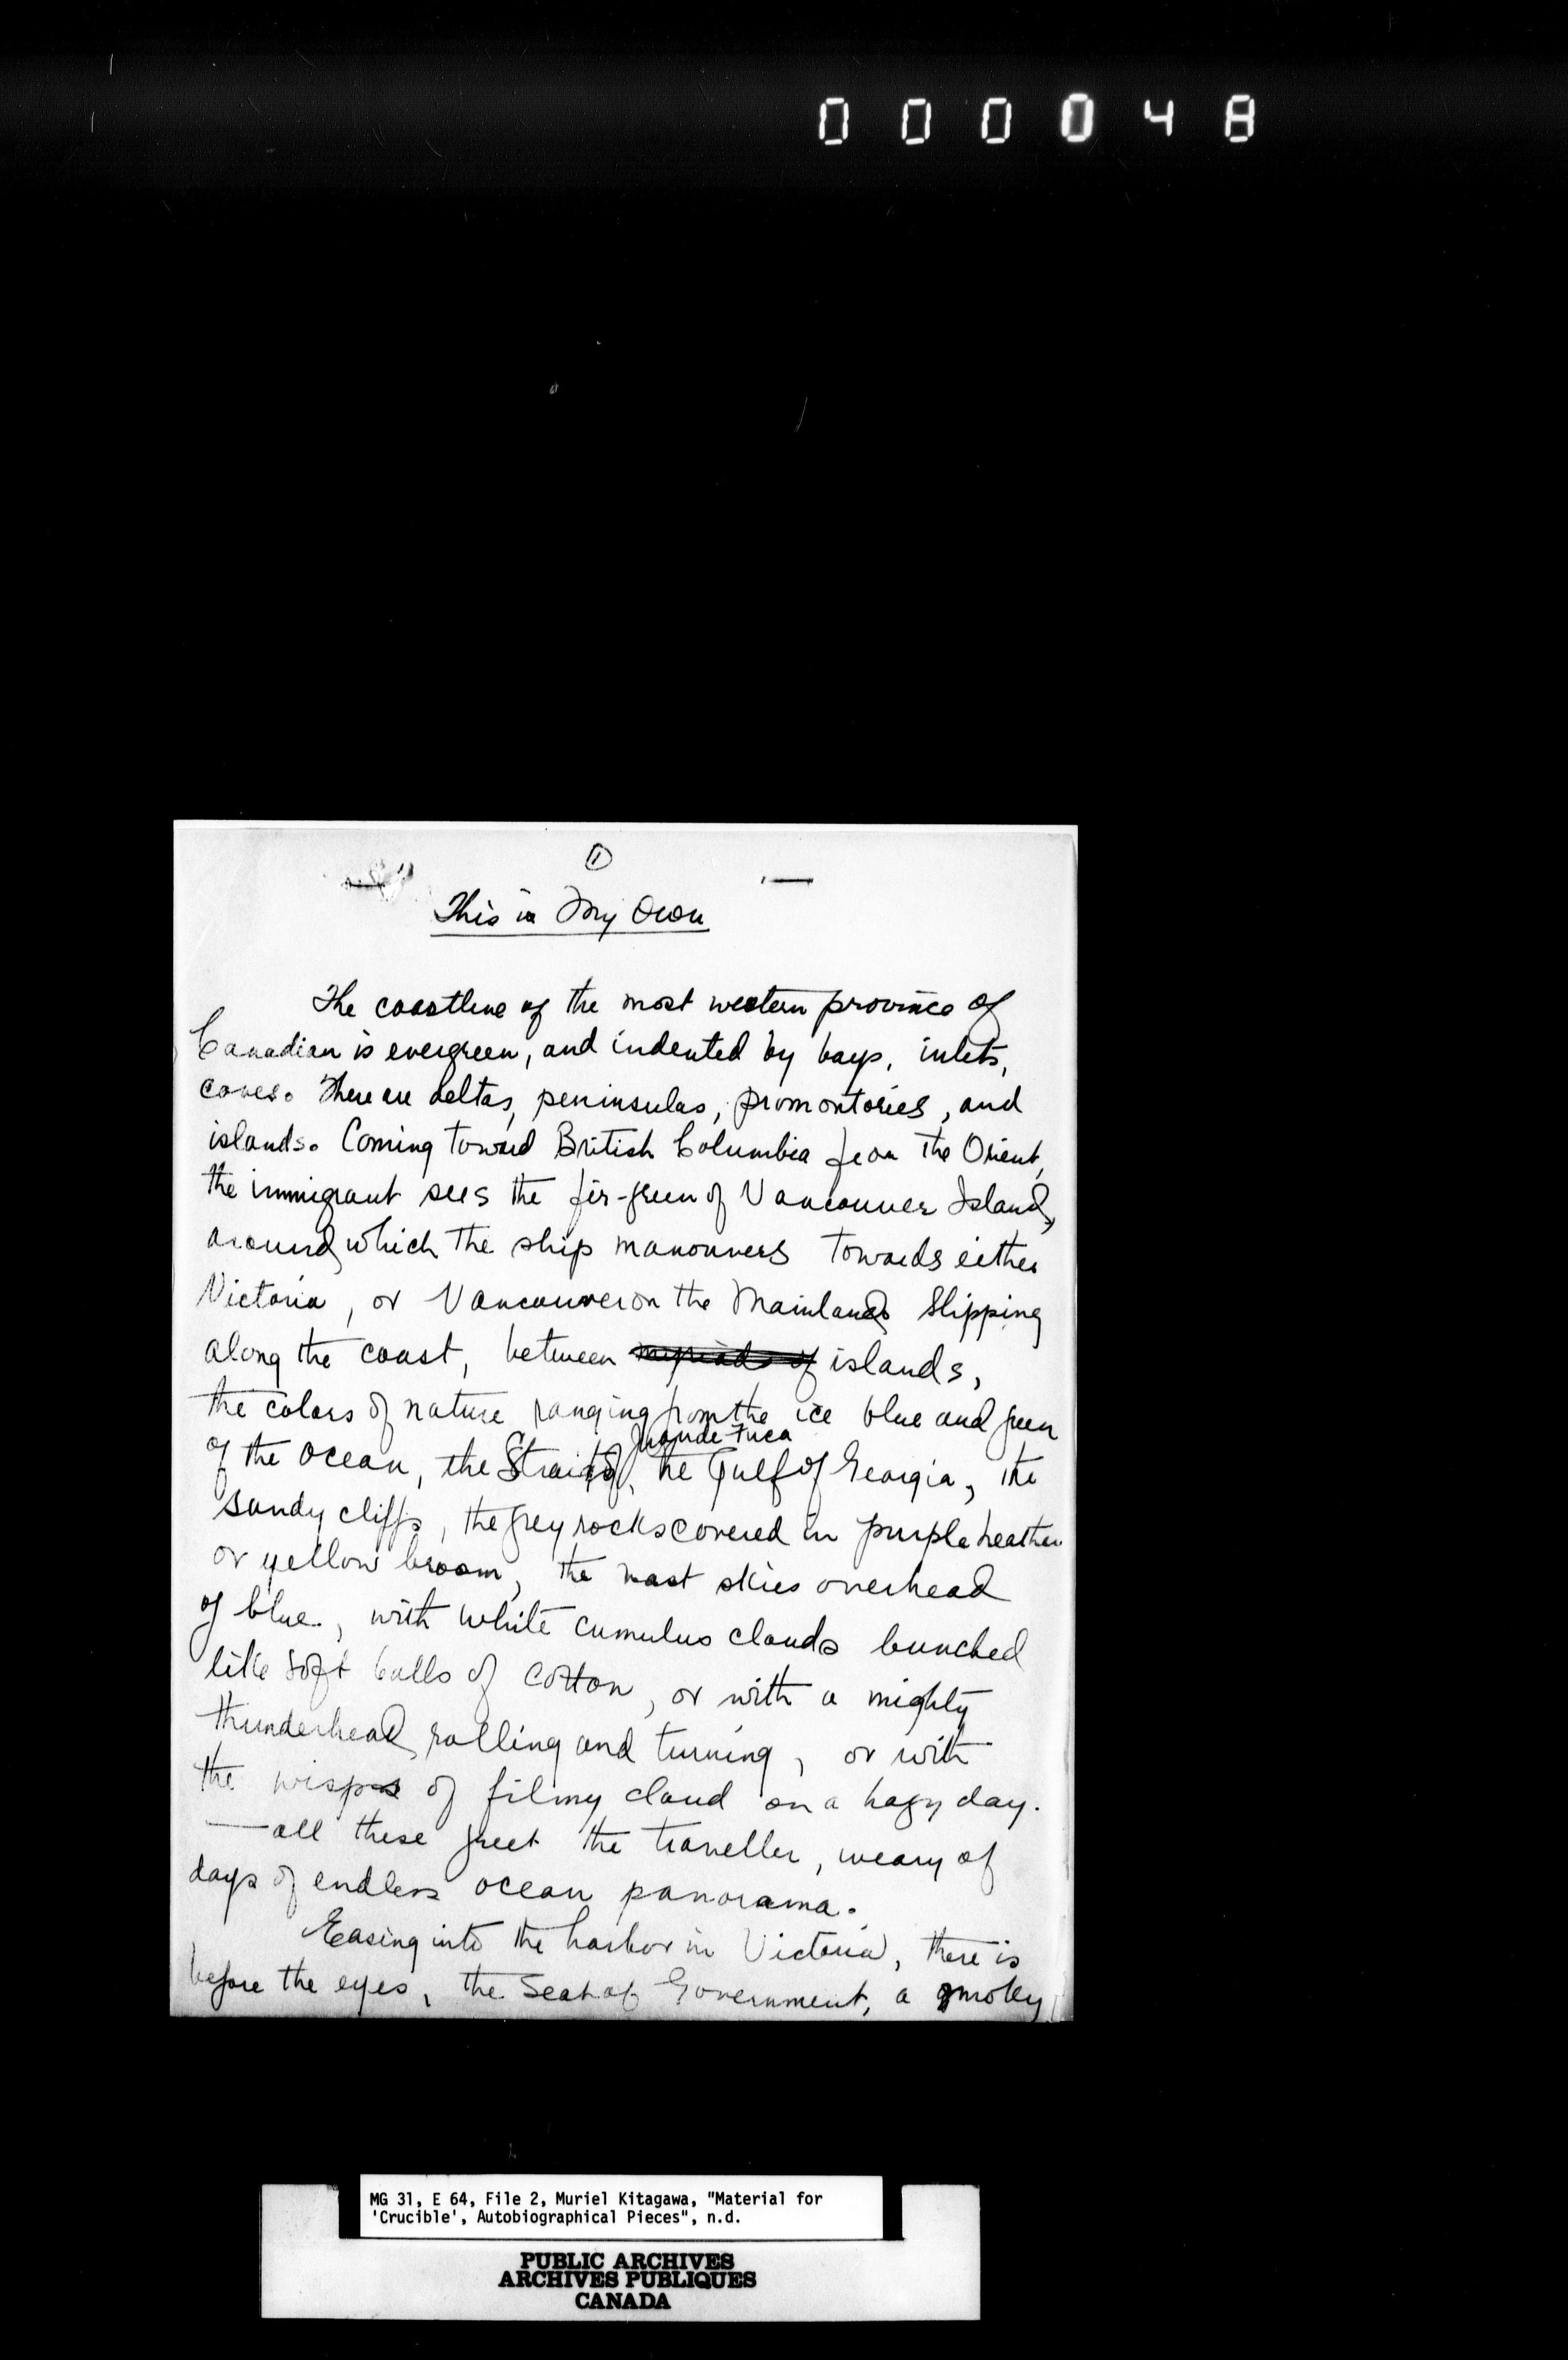 000048
1
This is My Own
The coastline of the most western province of
Canadian is evergreen, and indented by bays, inlets,
coves. There are deltas, peninsulas, promontories, and
islands. Coming toward British Columbia from the Orient,
the immigrant sees the fir-green of Vancouver Island,
around which the ship manouvers towards either
Victoria, or Vancouver on the Mainland Slipping
along the coast, between myriads of islands,
the colors of nature ranging from the ice blue and green
Juan de Fuca
of the ocean, the Strait of, the Gulf of Georgia, the
sandy cliffs, the grey rocks covered in purple heather
or yellow broom, the vast skies overhead
of blue, with white cumulus clouds bunched
like soft balls of cotton, or with a mighty
thunderhead rolling and turning, or with
the wisps of filmy cloud on a hazy day.
—all these greet the traveller, weary of
days of endless ocean panorama.
Easing into the harbor in Victoria, there is
before the eyes, the Seat of Government, a smoky
MG 31, E 64, File 2, Muriel Kitagawa, "Material for
'Crucible', Autobiographical Pieces", n.d.
PUBLIC ARCHIVES
ARCHIVES PUBLIQUES
CANADA